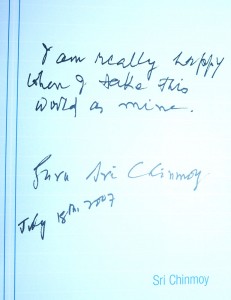 I am really happy
when I take this
world as mine.
Guru Sri Chinmoy
July 18th 2007
Sri Chinmoy